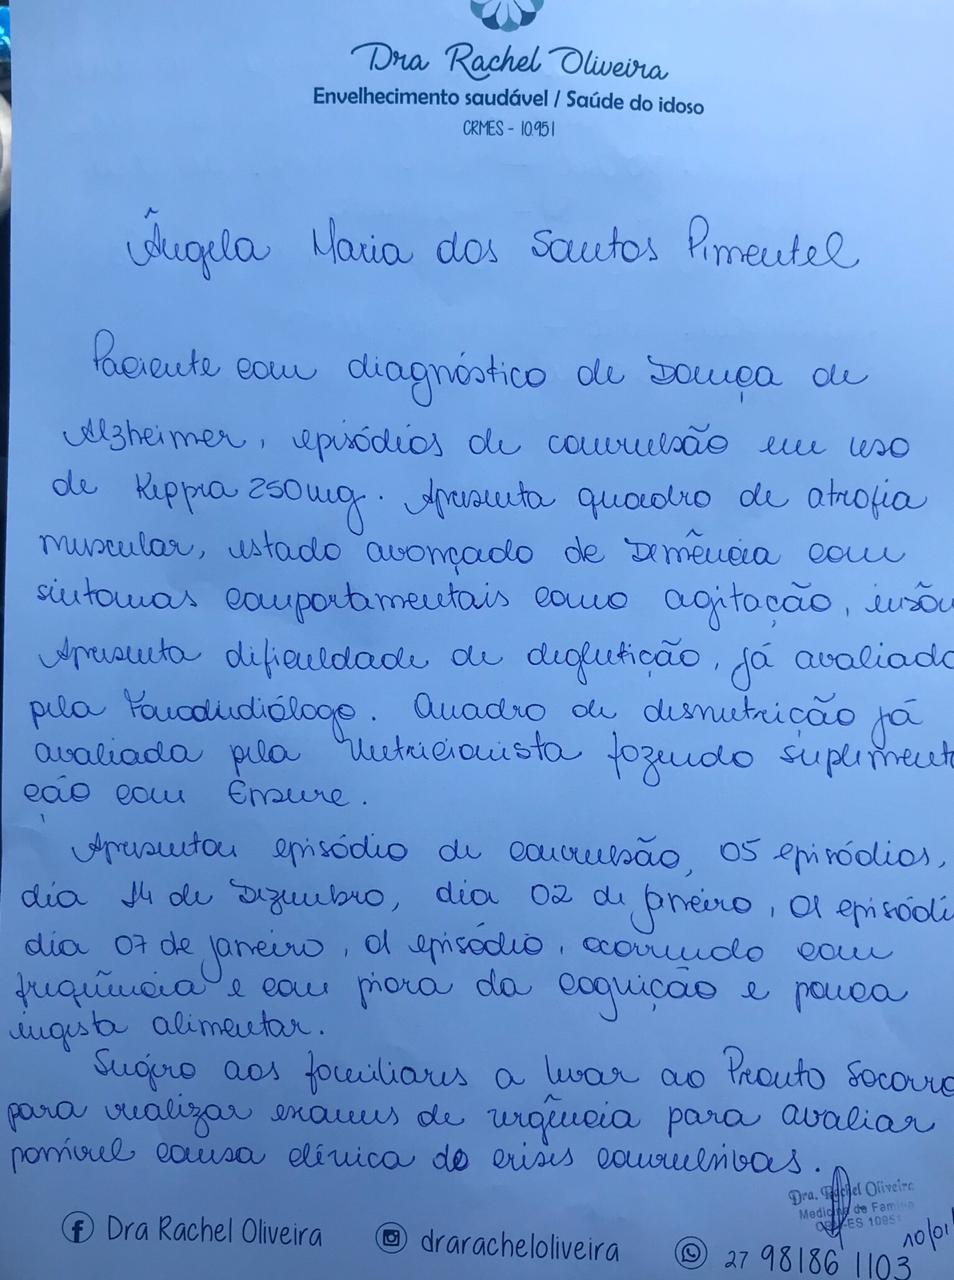 Dra Rachel Oliveira
Envelhecimento saudável / Saúde do idoso
CRMES - 10.951
Ângela Maria dos Santos Pimentel
Paciente com diagnóstico de Doença de
Alzheimer, episódios de convulsão em uso
de Keppra 250mg. Apresenta quadro de atrofia
muscular, estado avançado de Demência com
sintomas comportamentais como agitação, insôn
Apresenta dificuldade de deglutição, já avaliado
pela Fonoaudiólogo. Quadro de desnutrição já
avaliada pela Nutricionista fazendo suplement
ção com Ensure.
Apresentou episódio de convulsão, 05 episódios,
dia 14 de Dezembro, dia 02 de janeiro, 01 episódi
dia 07 de janeiro, 01 episódio, ocorrendo com
frequência e com piora da cognição e pouca
ingesta alimentar.
Sugiro aos familiares a levar ao Pronto Socorro
para realizar exames de urgência para avaliar
possível causa clínica de crises convulsivas.
Dra. Rachel Oliveira
Medicina de Família
CRM-ES 10951
10/01
Dra Rachel Oliveira
draracheloliveira
27 98186 1103